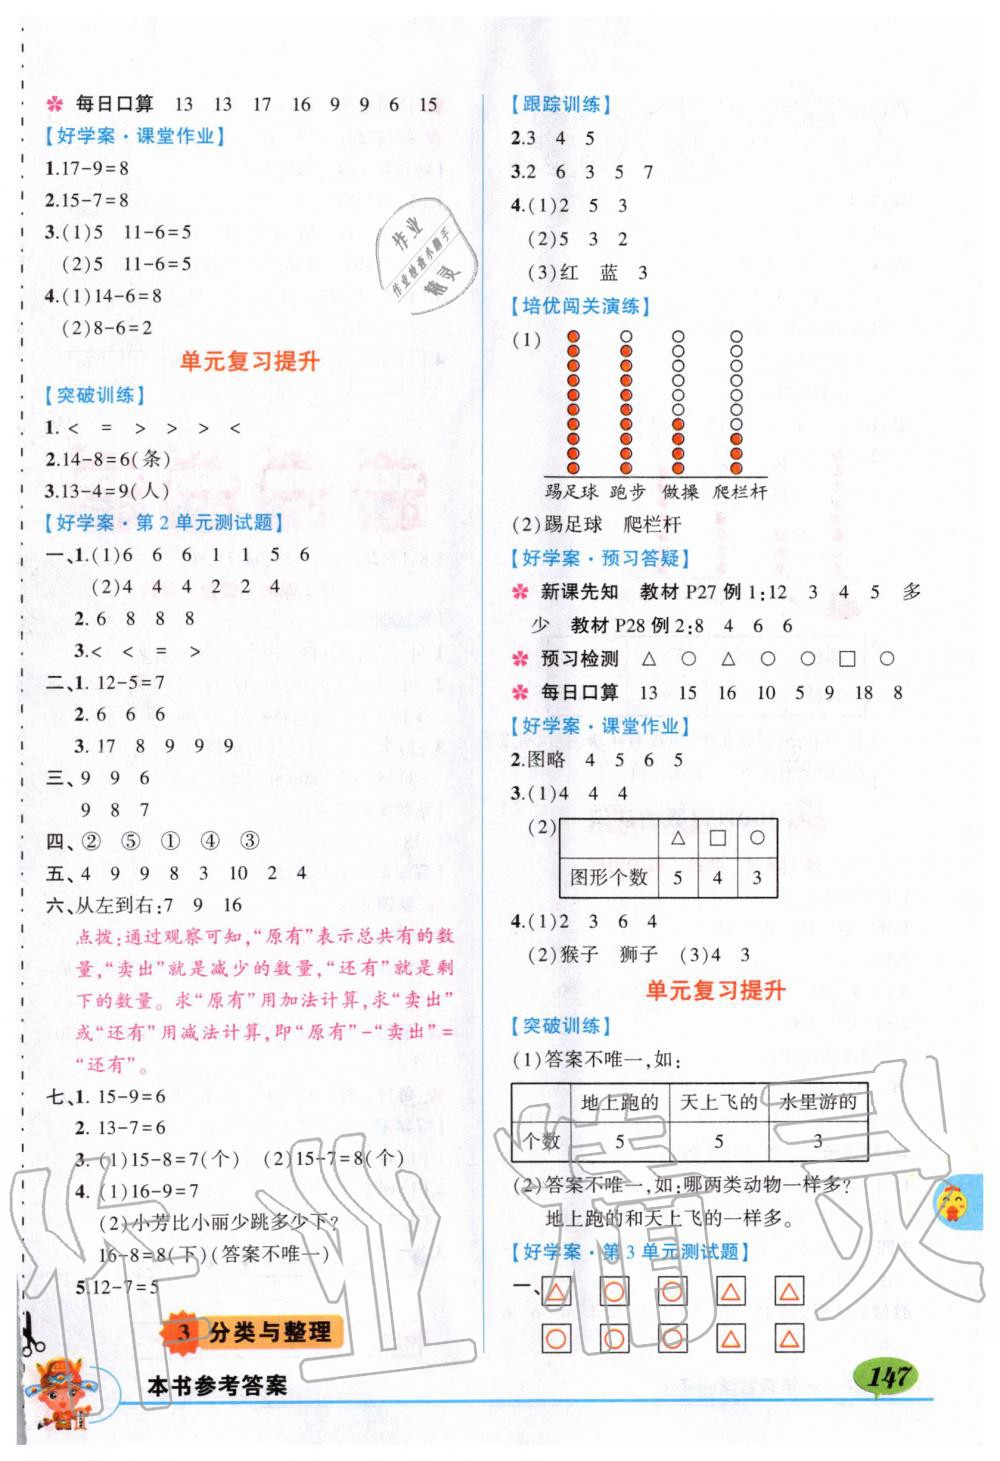 每日口算 13 13 17 16 9 9 6 15
【好学案·课堂作业】
1.17-9=8
2.15-7=8
3.(1)5 11-6=5
(2)5 11-6=5
4.(1)14-6=8
(2)8-6=2
单元复习提升
【突破训练】
1.< = > > > <
2.14-8=6(条)
3.13-4=9(人)
【好学案·第2单元测试题】
一、1.(1)6 6 6 1 1 5 6
(2)4 4 4 2 2 4
2.6 8 8 8
3.< < = >
二、1.12-5=7
2.6 6 6
3.17 8 9 9 9
三、9 9 6
9 8 7
四、② ⑤ ① ④ ③
五、4 9 9 8 3 10 2 4
六、从左到右:7 9 16
点拨:通过观察可知,“原有”表示总共有的数
量,“卖出”就是减少的数量,“还有”就是剩
下的数量。求“原有”用加法计算,求“卖出”
或“还有”用减法计算,即“原有”-“卖出”=
“还有”。
七、1.15-9=6
2.13-7=6
3.(1)15-8=7(个) (2)15-7=8(个)
4.(1)16-9=7
(2)小芳比小丽少跳多少下?
16-8=8(下)(答案不唯一)
5.12-7=5
3 分类与整理
【跟踪训练】
2.3 4 5
3.2 6 3 5 7
4.(1)2 5 3
(2)5 3 2
(3)红 蓝 3
【培优闯关演练】
(1)
踢足球 跑步 做操 爬栏杆
(2)踢足球 爬栏杆
【好学案·预习答疑】
新课先知 教材P27例1:12 3 4 5 多
少 教材P28例2:8 4 6 6
预习检测 △ ○ △ ○ ○ □ ○
每日口算 13 15 16 10 5 9 18 8
【好学案·课堂作业】
2.图略 4 5 6 5
3.(1)4 4 4
(2)
△ □ ○
图形个数 5 4 3
4.(1)2 3 6 4
(2)猴子 狮子 (3)4 3
单元复习提升
【突破训练】
(1)答案不唯一,如:
地上跑的 天上飞的 水里游的
个数 5 5 3
(2)答案不唯一,如:哪两类动物一样多?
地上跑的和天上飞的一样多。
【好学案·第3单元测试题】
一、△ ○ ○ △ △
○ ○ ○ △ △
本书参考答案
147
作业
作业检查小助手
精灵
作业精灵